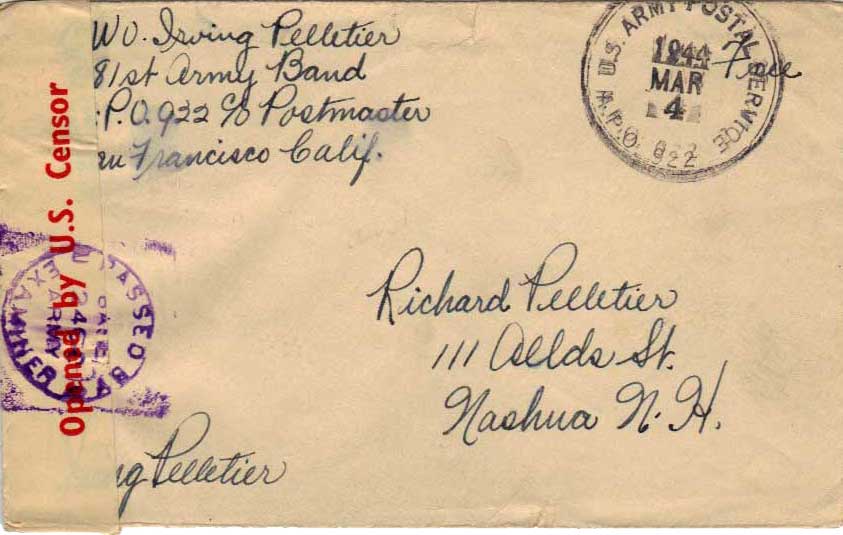 WO. Irving Pelletier
81st Army Band
.P.O. 922 c/o Postmaster
an Francisco Calif.
U.S. ARMY POSTAL SERVICE
1944
MAR
4
A.P.O. 922
Free
Opened by U.S. Censor
PASSED BY
ARMY EXAMINER
Richard Pelletier
111 Allds St.
Nashua N. H.
ng Pelletier